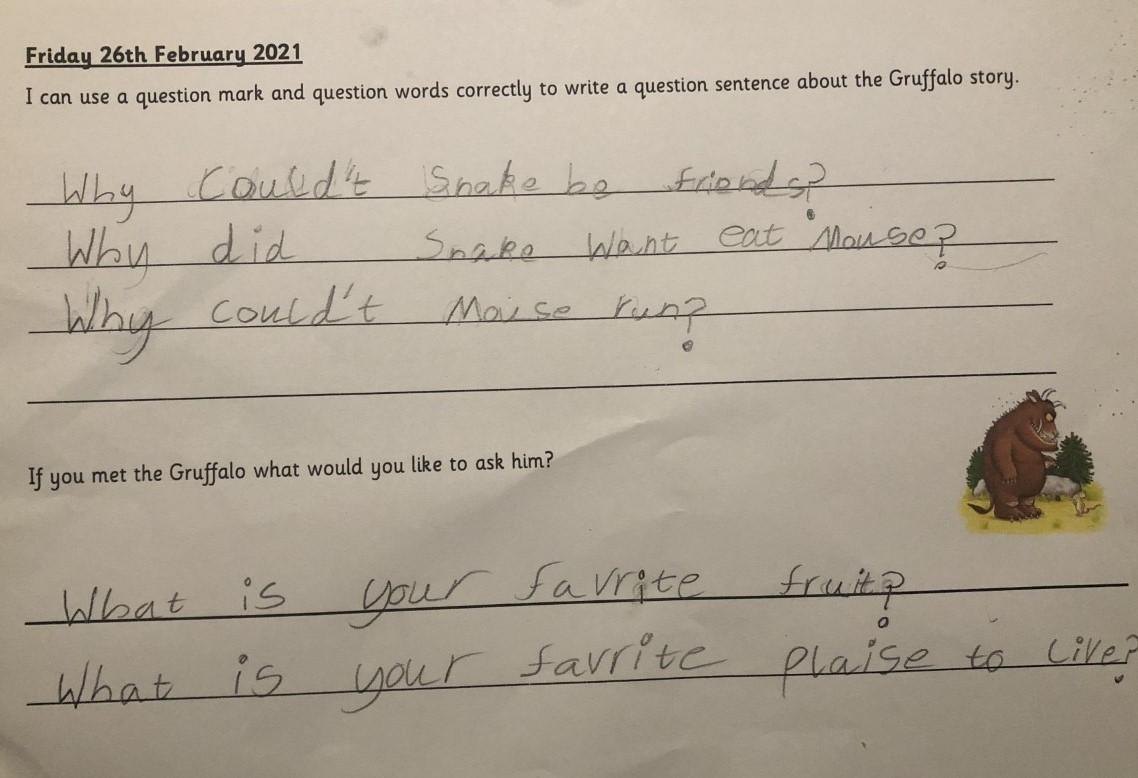 Friday 26th February 2021
I can use a question mark and question words correctly to write a question sentence about the Gruffalo story.
Why Could't Snake be friends?
Why did Snake Want eat Mouse?
Why could't Mouse run?
If you met the Gruffalo what would you like to ask him?
What is your favrite fruit?
What is your favrite plaise to live?